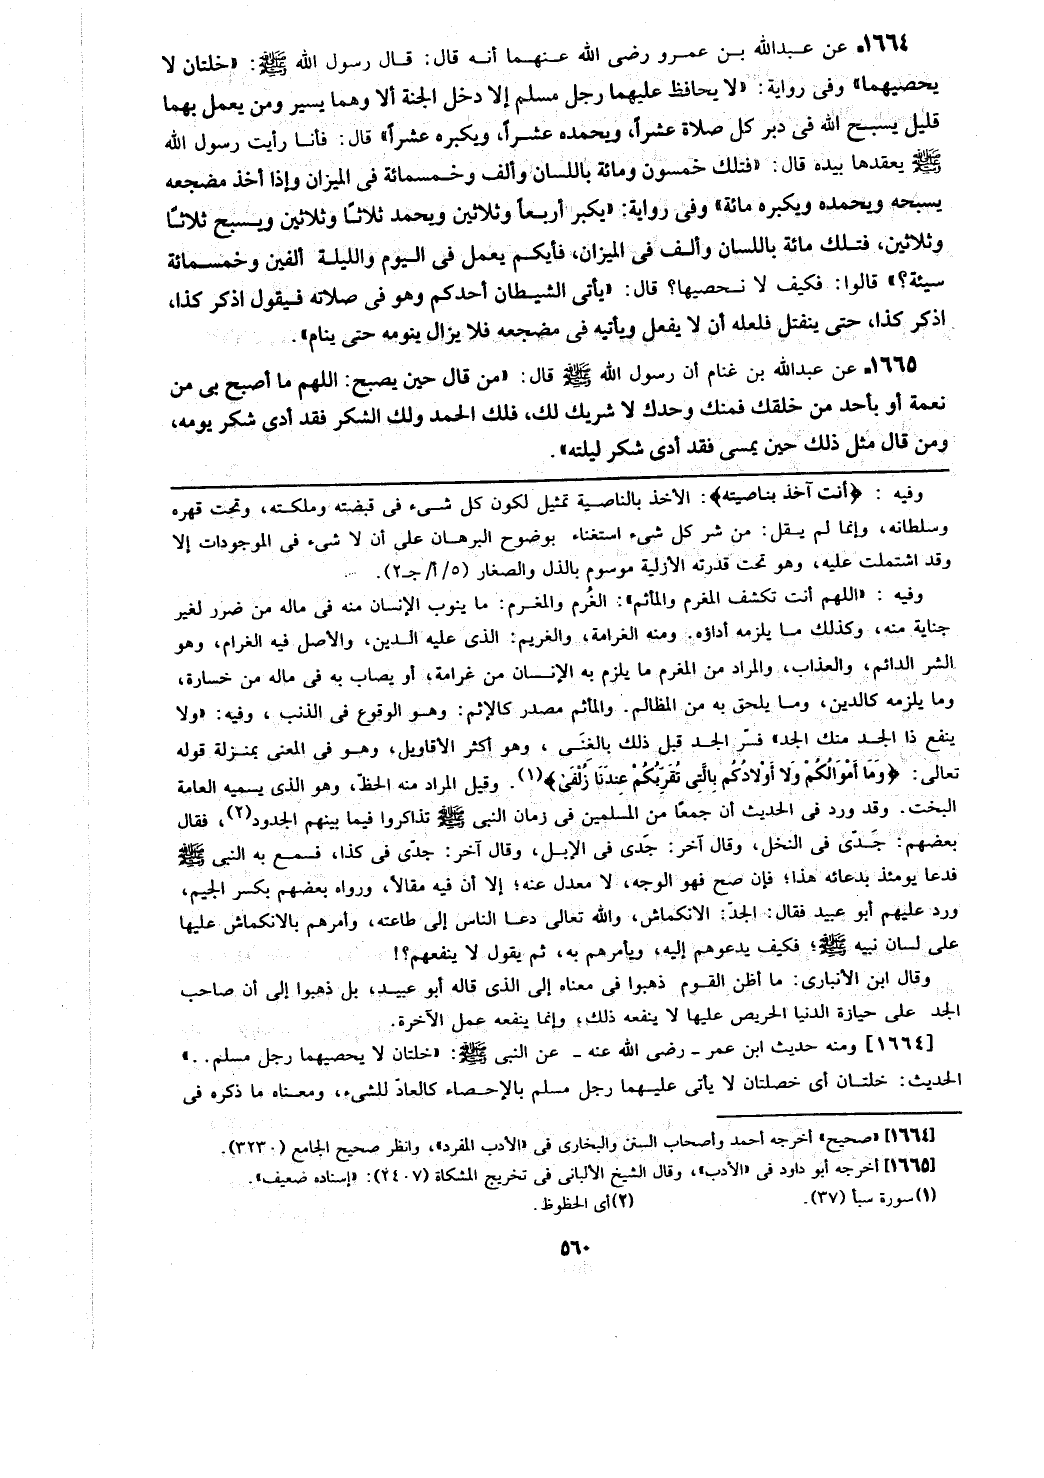 ١٦٦٤ـ عن عبدالله بن عمرو رضى الله عنهما أنه قال: قال رسول الله ﷺ: «خلتان لا
يحصيهما» وفى رواية: «لا يحافظ عليهما رجل مسلم إلا دخل الجنة ألا وهما يسير ومن يعمل بهما
قليل يسبح الله فى دبر كل صلاة عشراً، ويحمده عشراً، ويكبره عشراً» قال: فأنا رأيت رسول الله
ﷺ يعقدها بيده قال: «فتلك خمسون ومائة باللسان وألف وخمسمائة فى الميزان وإذا أخذ مضجعه
يسبحه ويحمده ويكبره مائة» وفى رواية: «يكبر أربعاً وثلاثين ويحمد ثلاثًا وثلاثين ويسبح ثلاثًا
وثلاثين، فتلك مائة باللسان وألف فى الميزان، فأيكم يعمل فى اليوم والليلة ألفين وخمسمائة
سيئة؟» قالوا: فكيف لا نحصيها؟ قال: «يأتى الشيطان أحدكم وهو فى صلاته فيقول اذكر كذا،
اذكر كذا، حتى ينفتل فلعله أن لا يفعل ويأتيه فى مضجعه فلا يزال ينومه حتى ينام».
١٦٦٥ـ عن عبدالله بن غنام أن رسول الله ﷺ قال: «من قال حين يصبح: اللهم ما أصبح بى من
نعمة أو بأحد من خلقك فمنك وحدك لا شريك لك، فلك الحمد ولك الشكر فقد أدى شكر يومه،
ومن قال مثل ذلك حين يمسى فقد أدى شكر ليلته».
وفيه : ﴿أنت آخذ بناصيته﴾: الأخذ بالناصية تمثيل لكون كل شىء فى قبضته وملكته، وتحت قهره
وسلطانه، وإنما لم يقل: من شر كل شىء استغناء بوضوح البرهان على أن لا شىء فى الموجودات إلا
وقد اشتملت عليه، وهو تحت قدرته الأزلية موسوم بالذل والصغار (٥/ أ/ جـ٢).
وفيه : «اللهم أنت تكشف المغرم والمأثم»: الغُرم والمغرم: ما ينوب الإنسان منه فى ماله من ضرر لغير
جناية منه، وكذلك ما يلزمه أداؤه. ومنه الغرامة، والغريم: الذى عليه الدين، والأصل فيه الغرام، وهو
الشر الدائم، والعذاب، والمراد من المغرم ما يلزم به الإنسان من غرامة، أو يصاب به فى ماله من خسارة،
وما يلزمه كالدين، وما يلحق به من المظالم. والمأثم مصدر كالإثم: وهو الوقوع فى الذنب ، وفيه: «ولا
ينفع ذا الجد منك الجد» فسّر الجد قبل ذلك بالغنَى ، وهو أكثر الأقاويل، وهو فى المعنى بمنزلة قوله
تعالى: ﴿وَمَا أَمْوَالُكُمْ وَلا أَوْلادُكُم بِالَّتِي تُقَرِّبُكُمْ عِندَنَا زُلْفَىٰ﴾(١). وقيل المراد منه الحظّ، وهو الذى يسميه العامة
البخت. وقد ورد فى الحديث أن جمعًا من المسلمين فى زمان النبى ﷺ تذاكروا فيما بينهم الجدود(٢)، فقال
بعضهم: جَدّى فى النخل، وقال آخر: جَدى فى الإبل، وقال آخر: جدّى فى كذا، فسمع به النبى ﷺ
فدعا يومئذ بدعائه هذا؛ فإن صح فهو الوجه، لا معدل عنه؛ إلا أن فيه مقالاً، ورواه بعضهم بكسر الجيم،
ورد عليهم أبو عبيد فقال: الجدّ: الانكماش، والله تعالى دعا الناس إلى طاعته، وأمرهم بالانكماش عليها
على لسان نبيه ﷺ؛ فكيف يدعوهم إليه، ويأمرهم به، ثم يقول لا ينفعهم؟!
وقال ابن الأنبارى: ما أظن القوم ذهبوا فى معناه إلى الذى قاله أبو عبيد، بل ذهبوا إلى أن صاحب
الجد على حيازة الدنيا الحريص عليها لا ينفعه ذلك؛ وإنما ينفعه عمل الآخرة.
[١٦٦٤] ومنه حديث ابن عمر ـ رضى الله عنه ـ عن النبى ﷺ: «خلتان لا يحصيهما رجل مسلم..»
الحديث: خلتان أى خصلتان لا يأتى عليهما رجل مسلم بالإحصاء كالعادّ للشىء، ومعناه ما ذكره فى
[١٦٦٤] «صحيح» أخرجه أحمد وأصحاب السنن والبخارى فى «الأدب المفرد»، وانظر صحيح الجامع (٣٢٣٠).
[١٦٦٥] أخرجه أبو داود فى «الأدب»، وقال الشيخ الألبانى فى تخريج المشكاة (٢٤٠٧): «إسناده ضعيف».
(١) سورة سبأ (٣٧). (٢) أى الحظوظ.
٥٦٠